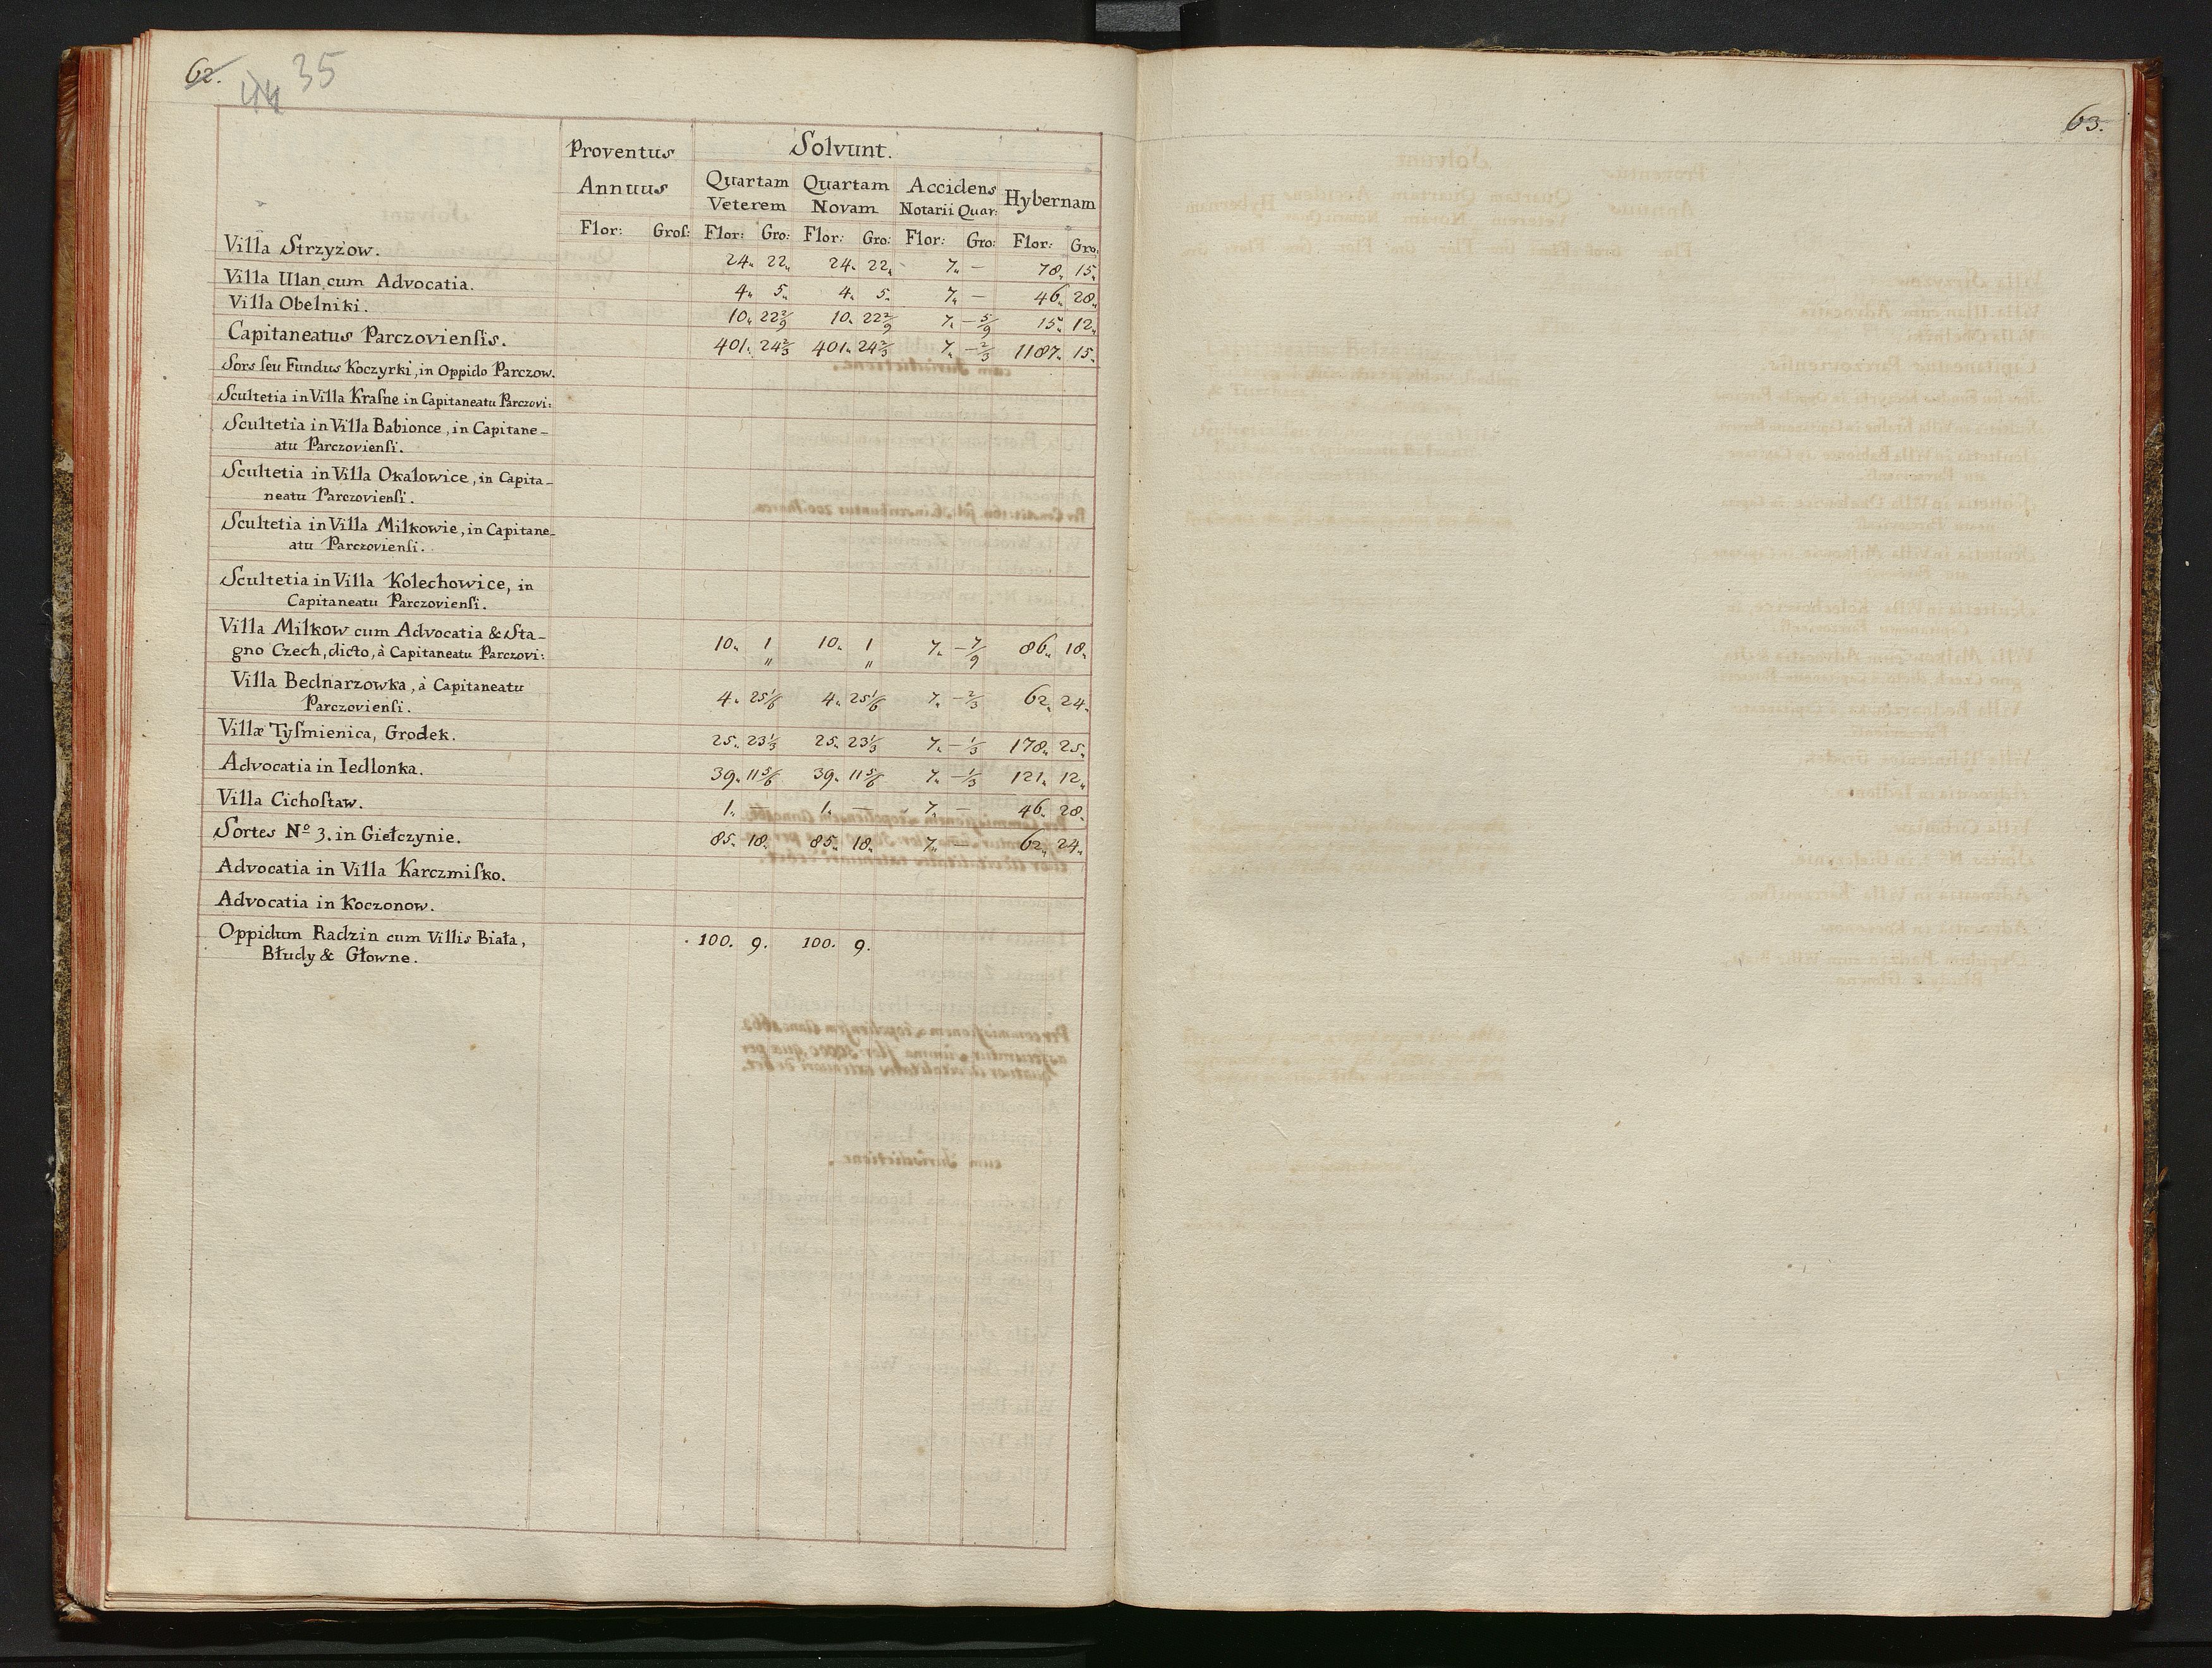 62.
44 35
Proventus Annuus
Solvunt.
Quartam Veterem Quartam Novam Accidens Notarii Quar: Hybernam
Flor: Groſ: Flor: Gro: Flor: Gro: Flor: Gro: Flor: Gro:
Villa Strzyżow. 24„ 22„ 24„ 22„ 7„ — 78„ 15„
Villa Ulan cum Advocatia. 4„ 5„ 4„ 5„ 7„ — 46„ 28„
Villa Obelniki. 10„ 22 2/9 10„ 22 2/9 7„ — 5/9 15„ 12„
Capitaneatus Parczovienſis. 401„ 24 2/3 401„ 24 2/3 7„ — 2/3 1187„ 15„
Sors ſeu Fundus Koczyrki, in Oppido Parczow.
Scultetia in Villa Kraſne in Capitaneatu Parczovi:
Scultetia in Villa Babionce, in Capitane-
atu Parczovienſi.
Scultetia in Villa Okalowice, in Capita-
neatu Parczovienſi.
Scultetia in Villa Milkowie, in Capitane-
atu Parczovienſi.
Scultetia in Villa Kolechowice, in
Capitaneatu Parczovienſi.
Villa Milkow cum Advocatia & Sta-
gno Czech, dicto, à Capitaneatu Parczovi: 10„ 1„ 10„ 1„ 7„ — 7/9 86„ 18„
Villa Bednarzowka, à Capitaneatu
Parczovienſi. 4„ 25 1/6 4„ 25 1/6 7„ — 2/3 62„ 24„
Villæ Tyſmienica, Grodek. 25„ 23 1/3 25„ 23 1/3 7„ — 1/3 178„ 25„
Advocatia in Iedlonka. 39„ 11 5/6 39„ 11 5/6 7„ — 1/3 121„ 12„
Villa Cichoſtaw. 1„ 1„ — 7„ — 46„ 28„
Sortes Nº 3. in Giełczynie. 85„ 18„ 85„ 18„ 7„ — 62„ 24„
Advocatia in Villa Karczmiſko.
Advocatia in Koczonow.
Oppidum Radzin cum Villis Biała, 100. 9. 100. 9.
Błudy & Głowne.
63.